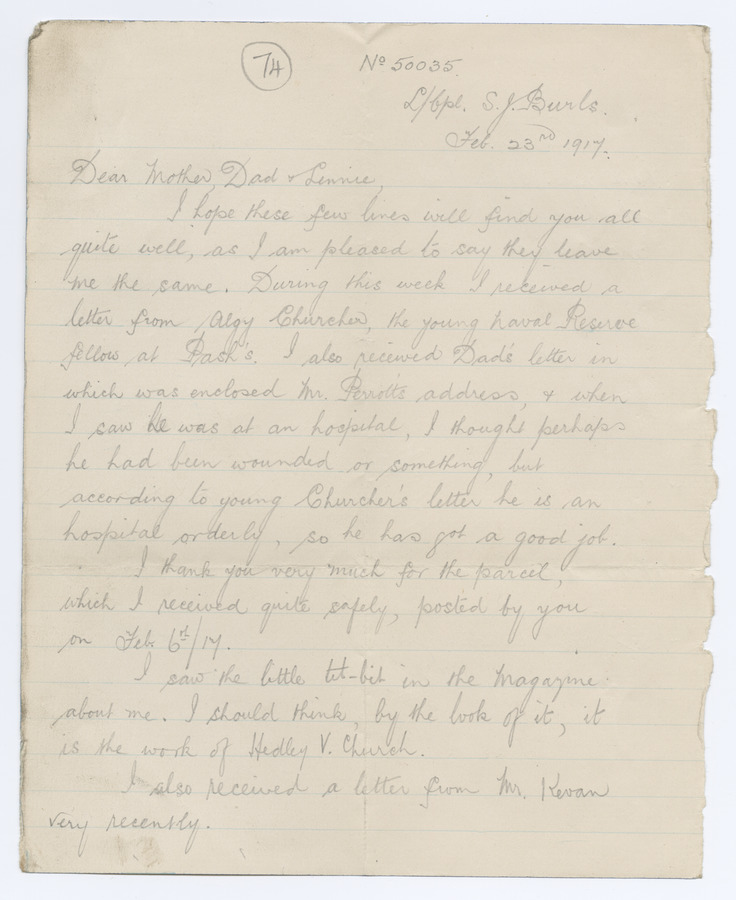 74
No 50035.
L/Cpl. S. J. Burls.
Feb. 23rd 1917.
Dear Mother, Dad & Linnie,
I hope these few lines will find you all
quite well, as I am pleased to say they leave
me the same. During this week I received a
letter from Algy Churcher, the young Naval Reserve
fellow at Bash's. I also received Dad's letter in
which was enclosed Mr. Perrott's address, & when
I saw he was at an hospital, I thought perhaps
he had been wounded or something, but
according to young Churcher's letter he is an
hospital orderly, so he has got a good job.
I thank you very much for the parcel,
which I received quite safely, posted by you
on Feb. 6th/17.
I saw the little tit-bit in the Magazine
about me. I should think, by the look of it, it
is the work of Hedley V. Church.
I also received a letter from Mr. Kevan
very recently.